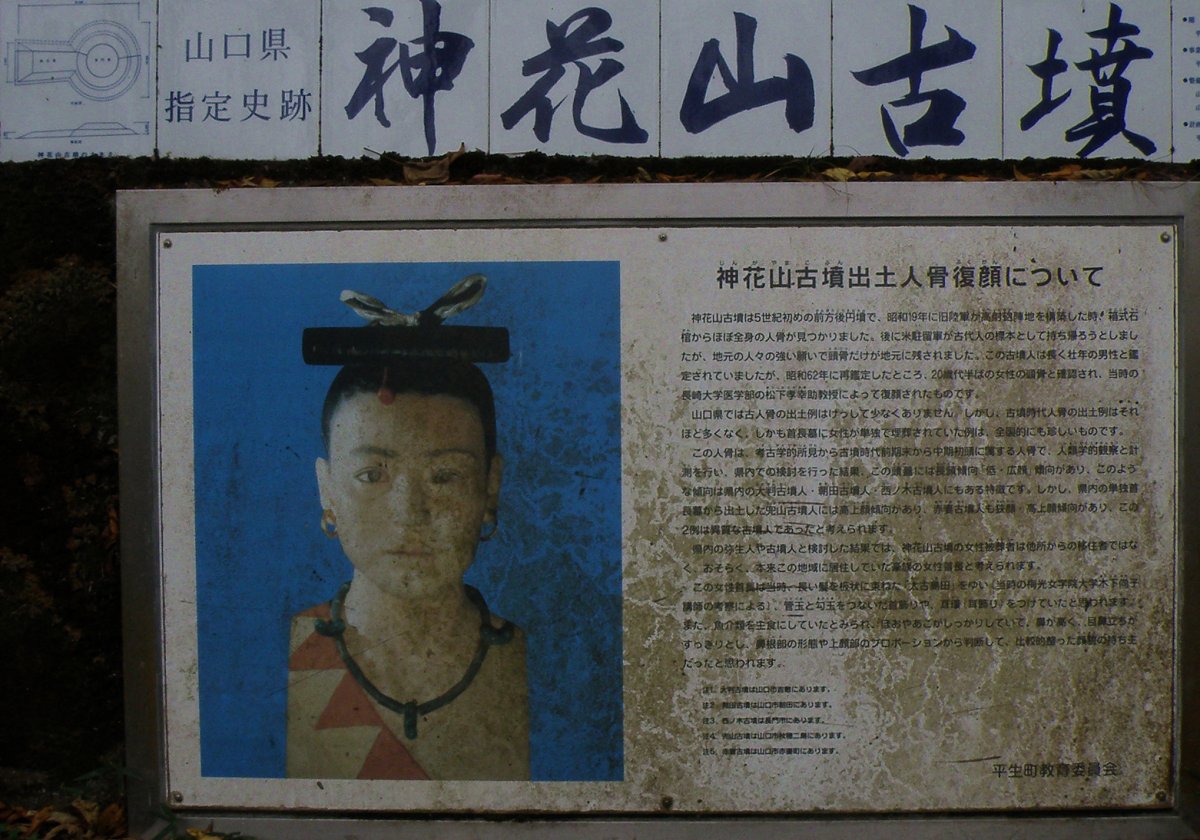 山口県
指定史跡
神花山古墳
神花山古墳出土人骨復顔について
神花山古墳は5世紀初めの前方後円墳で、昭和19年に旧陸軍が高射砲陣地を構築した時、箱式石
棺からほぼ全身の人骨が見つかりました。後に米駐留軍が古代人の標本として持ち帰ろうとしまし
たが、地元の人々の強い願いで頭骨だけが地元に残されました。この古墳人は長く壮年の男性と鑑
定されていましたが、昭和62年に再鑑定したところ、20歳代半ばの女性の頭骨と確認され、当時の
長崎大学医学部の松下孝幸助教授によって復顔されたものです。
山口県では古人骨の出土例はけっして少なくありません。しかし、古墳時代人骨の出土例はそれ
ほど多くなく、しかも首長墓に女性が単独で埋葬されていた例は、全国的にも珍しいものです。
この人骨は、考古学的所見から古墳時代前期末から中期初頭に属する人骨で、人類学的観察と計
測を行い、県内での検討を行った結果、この頭蓋には長頭傾向、低・広顔傾向があり、このよう
な傾向は県内の大判古墳人・朝田古墳人・西ノ木古墳人にもある特徴です。しかし、県内の単独首
長墓から出土した兜山古墳人には高上顔傾向があり、赤妻古墳人も狭顔・高上顔傾向があり、この
2例は異質な古墳人であったと考えられます。
県内の弥生人や古墳人と検討した結果では、神花山古墳の女性被葬者は他所からの移住者ではな
く、おそらく、本来この地域に居住していた豪族の女性首長と考えられます。
この女性首長は当時、長い髪を板状に束ねた「太古島田」をゆい(当時の梅光女学院大学木下尚子
講師の考察による)、管玉と勾玉をつないだ首飾りや、耳環(耳飾り)をつけていたと思われます。
また、魚介類を主食にしていたとみられ、ほおやあごがしっかりしていて、鼻が高く、目鼻立ちが
すっきりとし、鼻根部の形態や上顔部のプロポーションから判断して、比較的整った顔貌の持ち主
だったと思われます。
注1 大判古墳は山口市吉敷にあります。
注2 朝田古墳は山口市朝田にあります。
注3 西ノ木古墳は長門市にあります。
注4 兜山古墳は山口市秋穂二島にあります。
注5 赤妻古墳は山口市赤妻町にあります。
平生町教育委員会